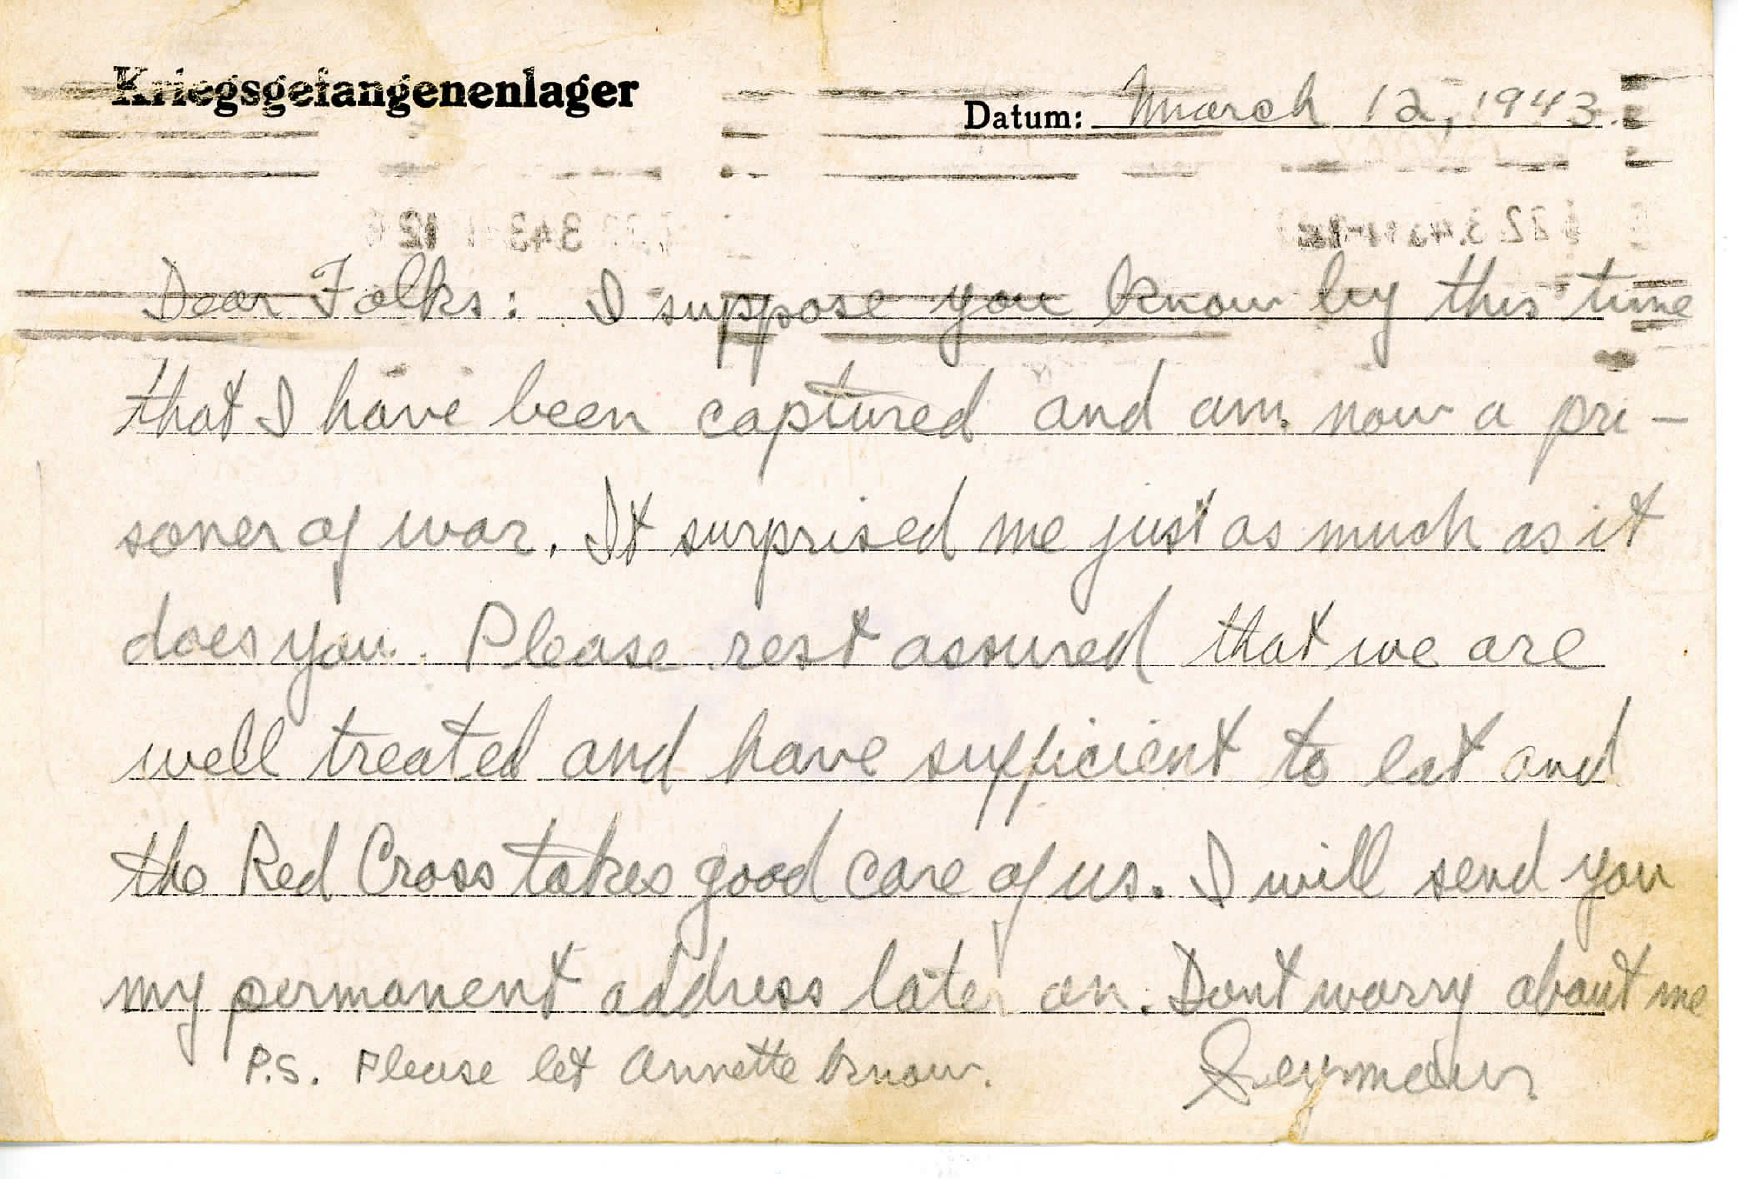 Kriegsgefangenenlager
Datum: March 12, 1943.
Dear Folks: I suppose you know by this time
that I have been captured and am now a pri-
soner of war. It surprised me just as much as it
does you. Please rest assured that we are
well treated and have sufficient to eat and
the Red Cross takes good care of us. I will send you
my permanent address later on. Dont worry about me
P.S. Please let Annette know.
Seymour